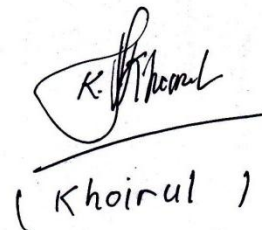 K. Khoirul
( Khoirul )